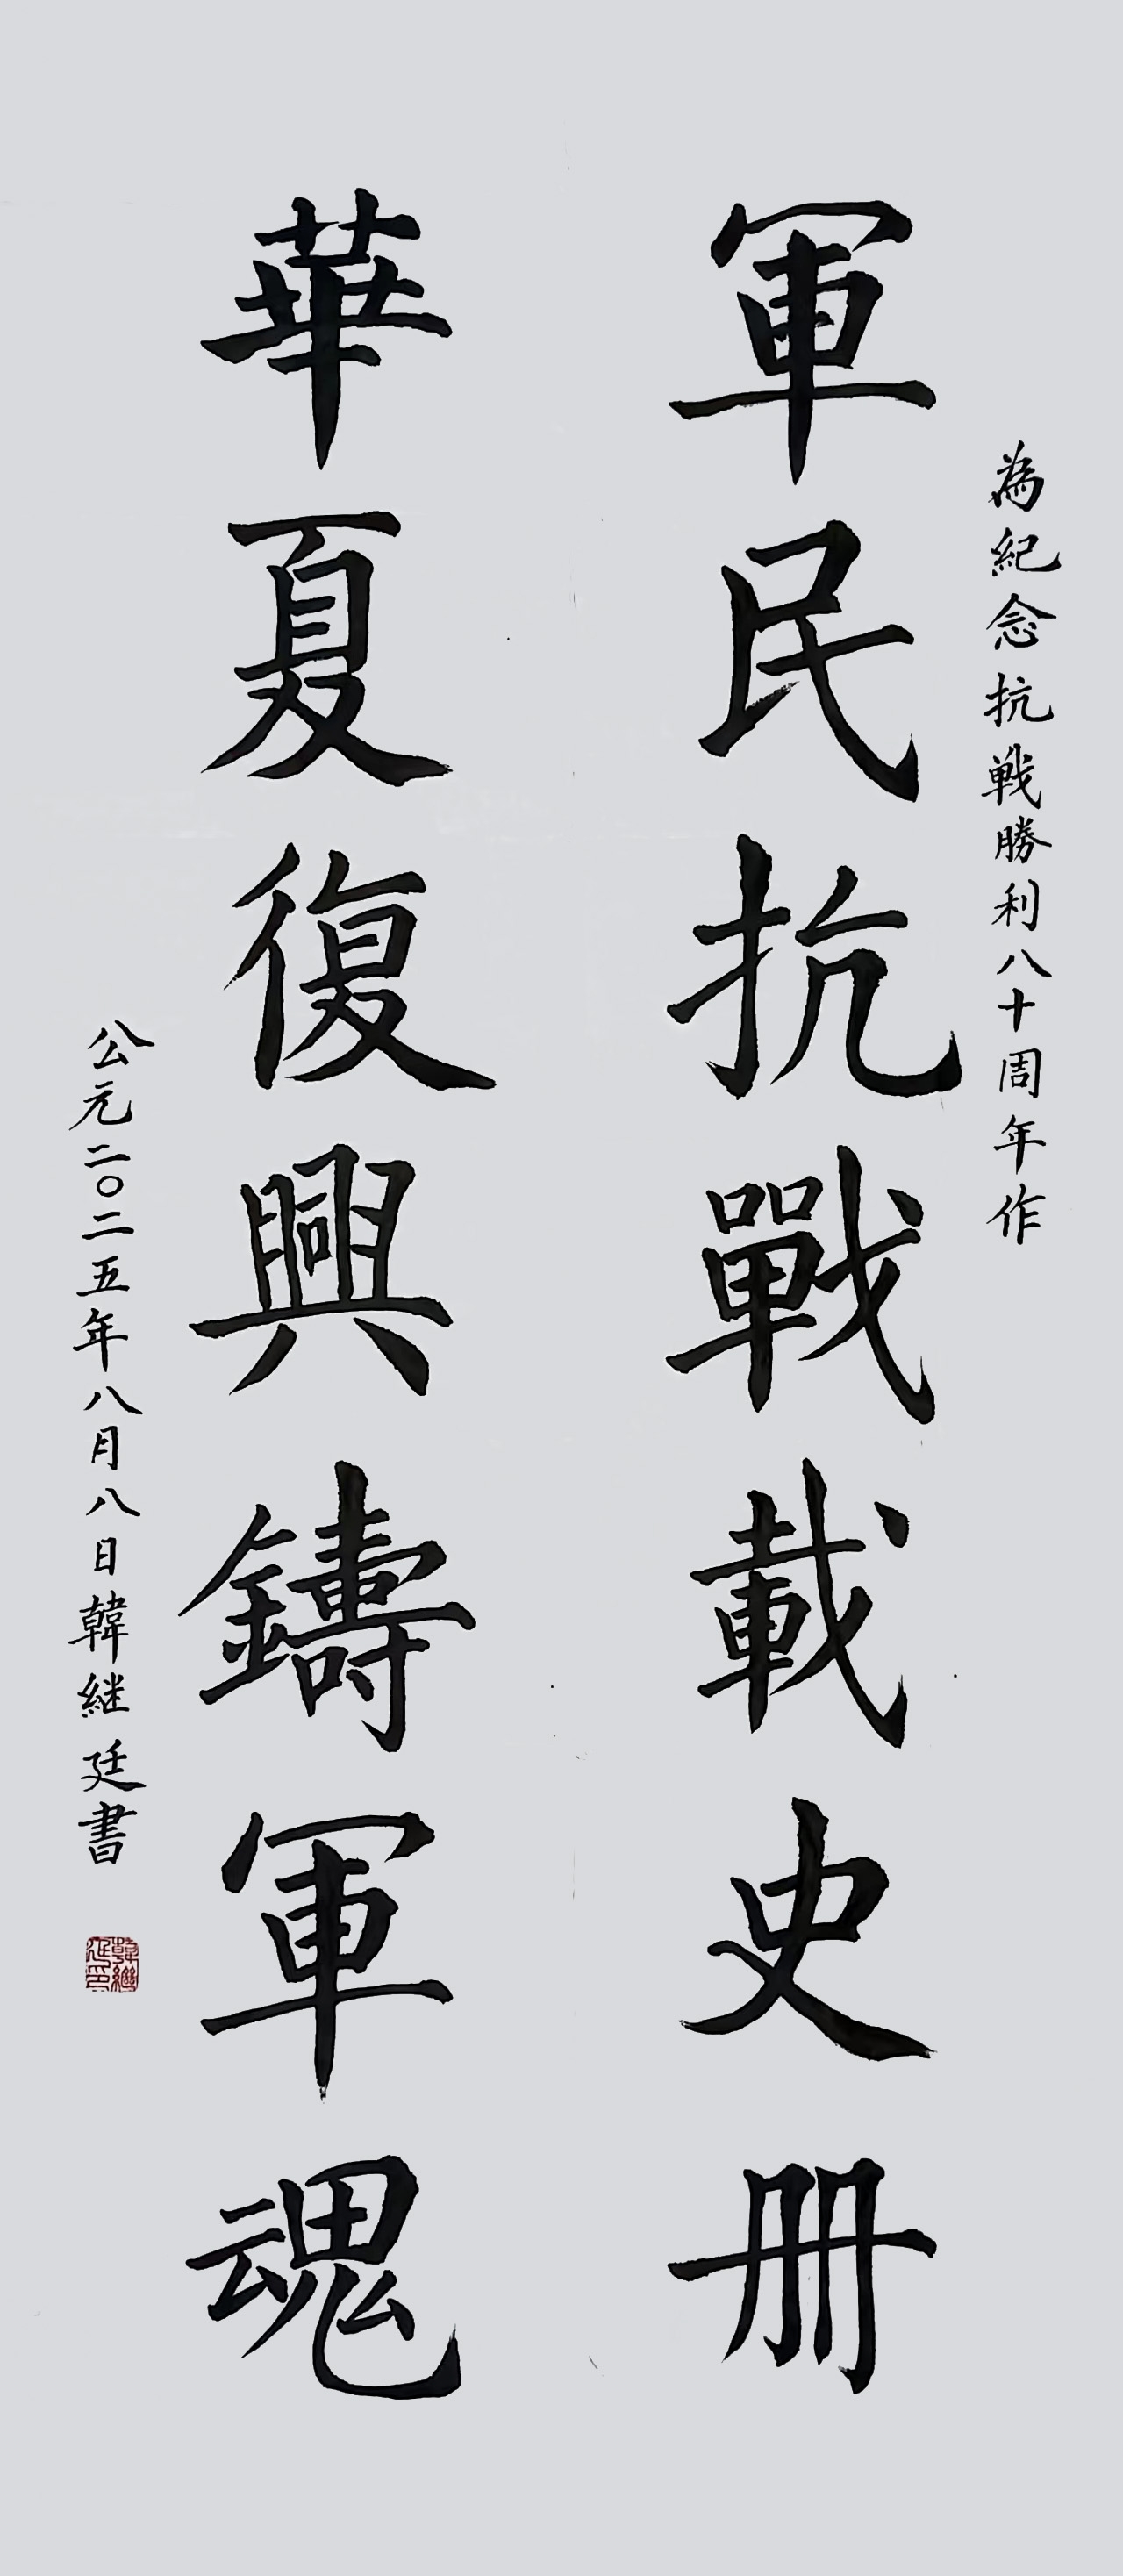 為紀念抗戦勝利八十周年作
軍民抗戰載史册
華夏復興鑄軍魂
公元二〇二五年八月八日韓継廷書
韓繼廷印